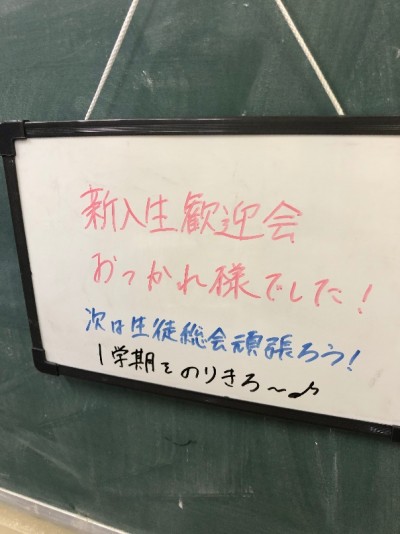 新入生歓迎会
おつかれ様でした!
次は生徒総会頑張ろう!
1学期をのりきろ〜♪